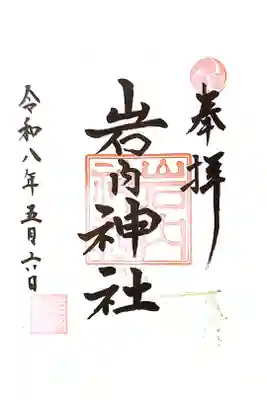 奉拝
岩内神社
令和八年五月六日